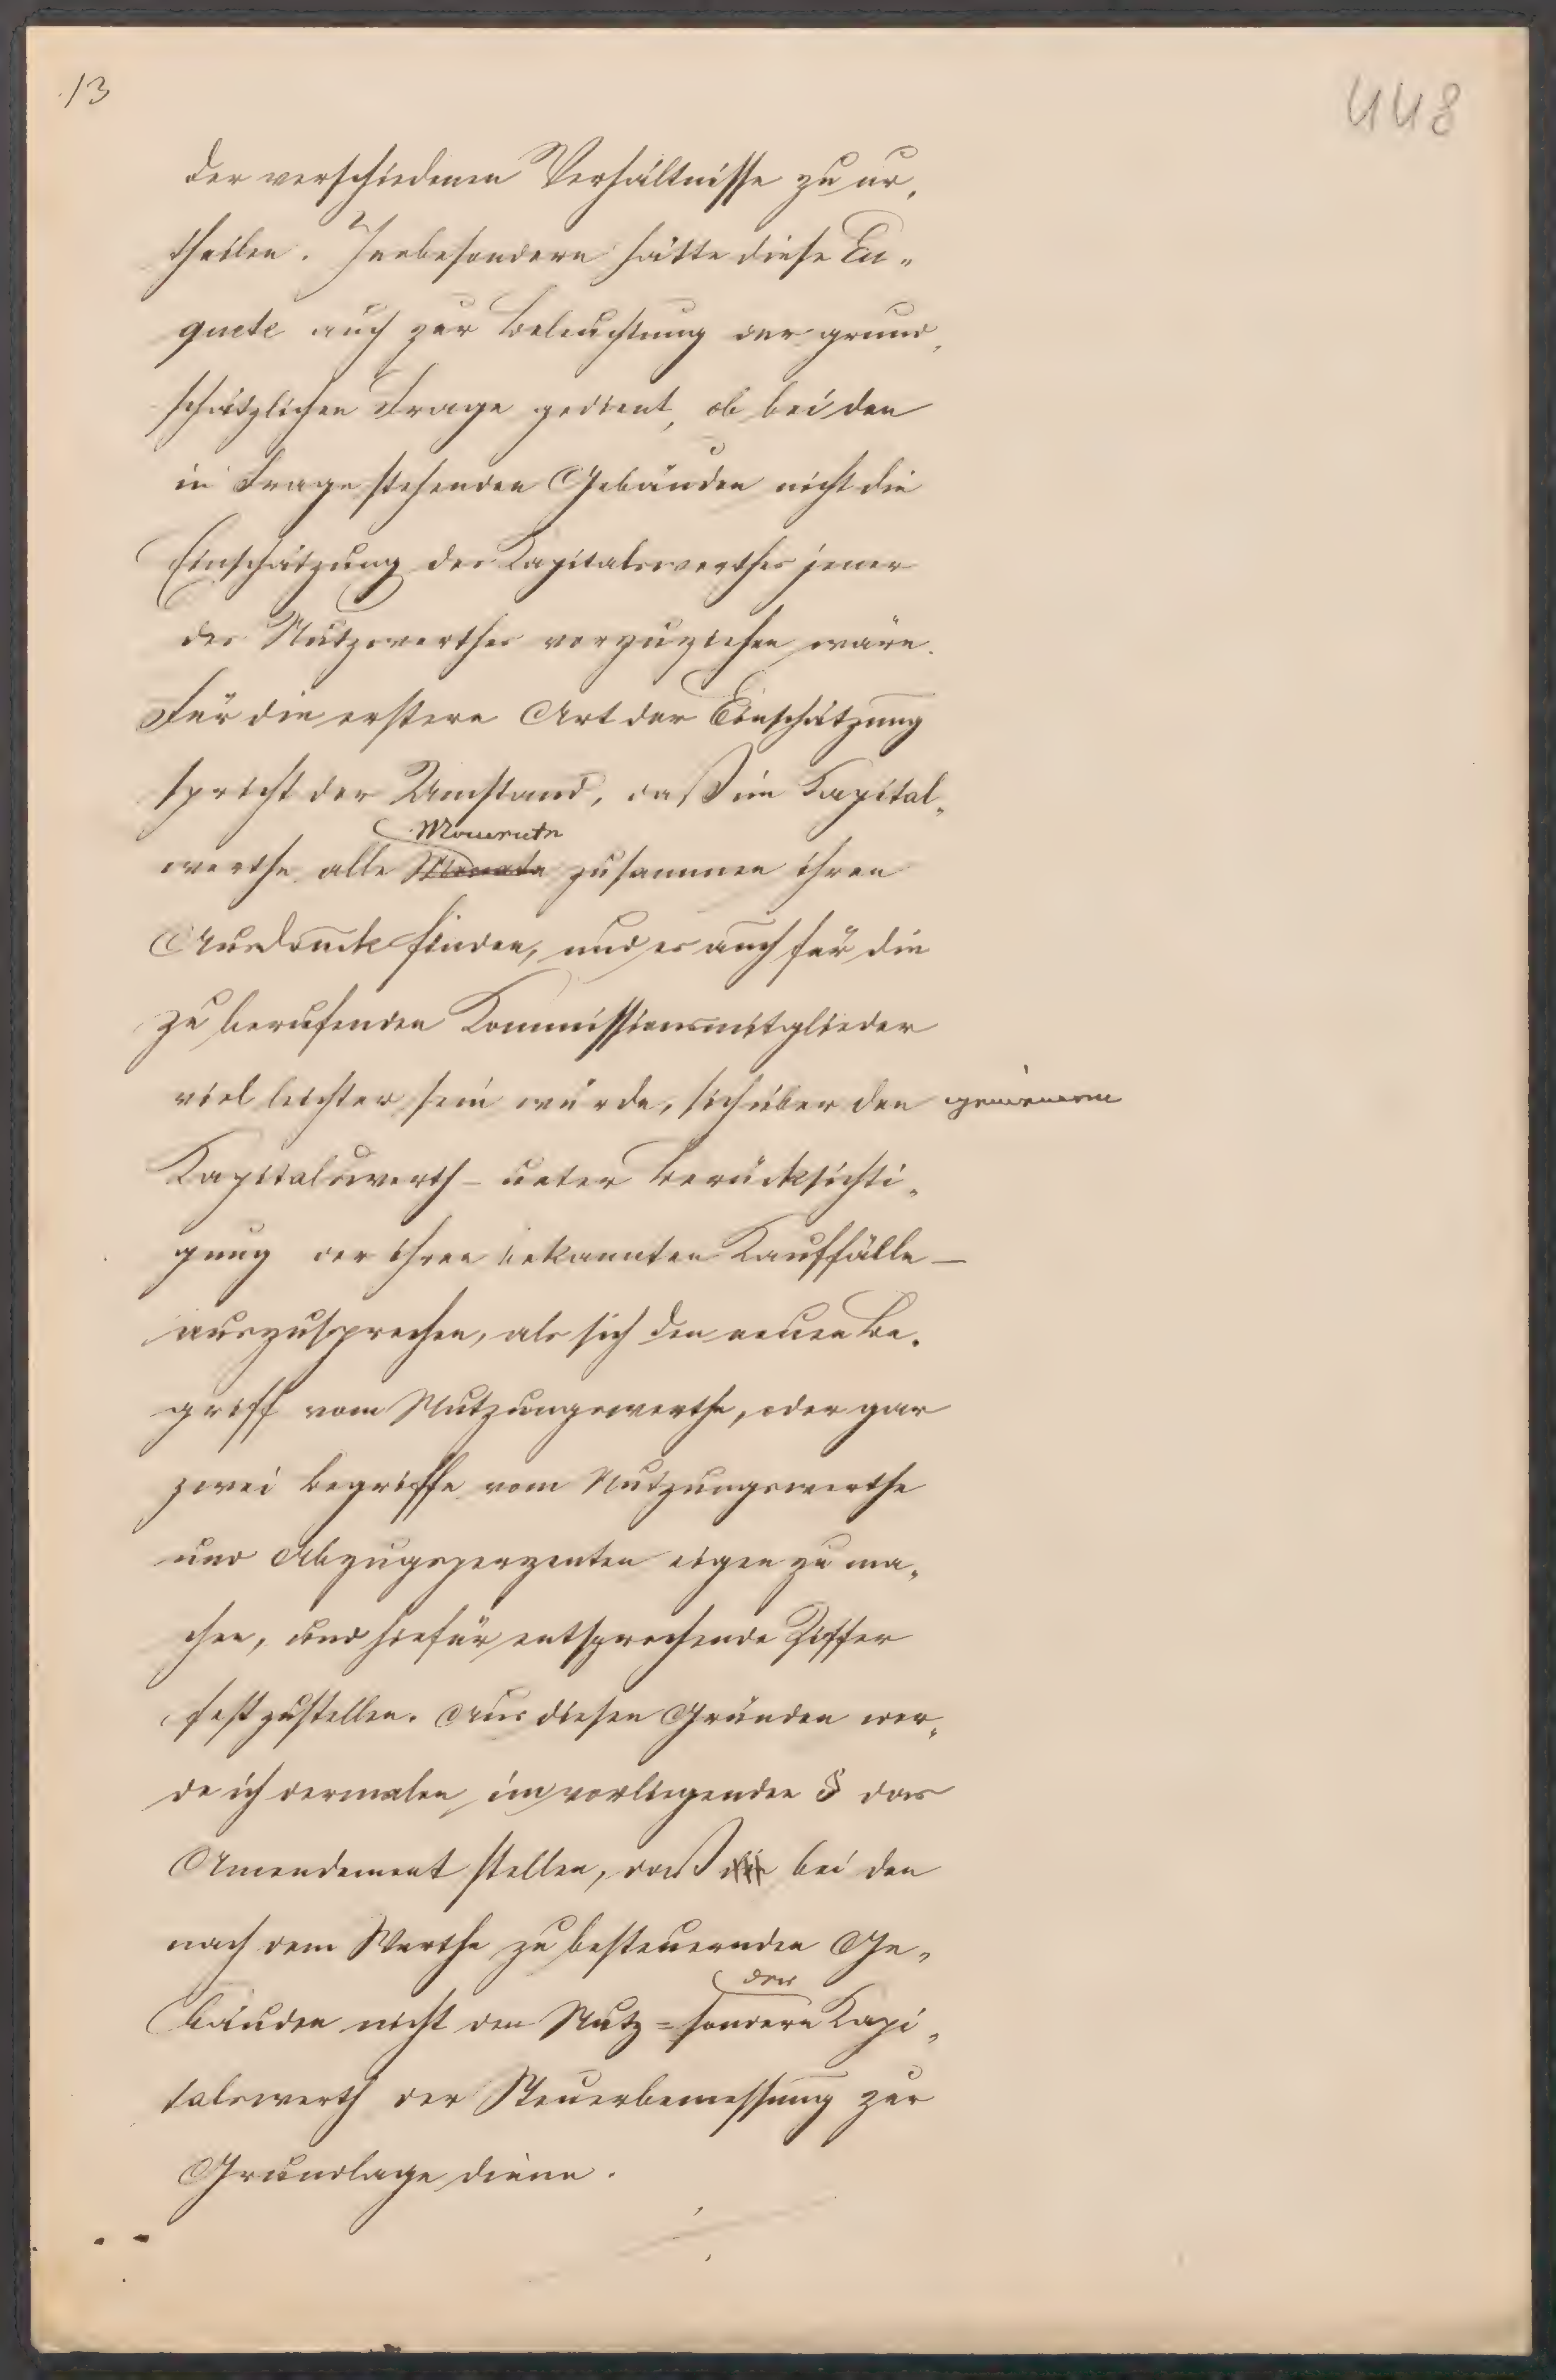 13
448
der verschiedenen Verhältnisse zu ur„
theilen. Insbesondere hätte diese En„
quete auch zur Beleuchtung der grund„
schätzlichen Frage gedient, ob bei den
in Frage stehenden Gebäuden nicht die
Einschätzung des Kapitalswerthes jener
des Nutzwerthes vorzuziehen wäre.
Für die erstere Art der Einschätzung
spricht der Umstand, daß im Kapital„
Momente
werthe alle Monate zusammen ihren
Ausdruck finden, und es auch für die
zu berufenden Kommissionsmitglieder
viel leichter sein würde, sich über den
Kapitalswerth – unter Berücksichti„
gung der ihren bekannten Kauffälle –
auszusprechen, als sich den neuen Be„
griff vom Nutzungswerthe, oder gar
zwei Begriffe vom Nutzungswerthe
und Abzugsperzenten eigen zu ma„
chen, und hiefür entsprechende Ziffer
festzustellen. Aus diesen Gründen wer„
de ich dermalen im vorliegenden § das
Amendement stellen, daß die bei den
nach dem Werthe zu besteuernden Ge„
den
bäuden nicht den Nutz= sondern Kapi„
talswerth der Steuerbemessung zur
Grundlage diene.